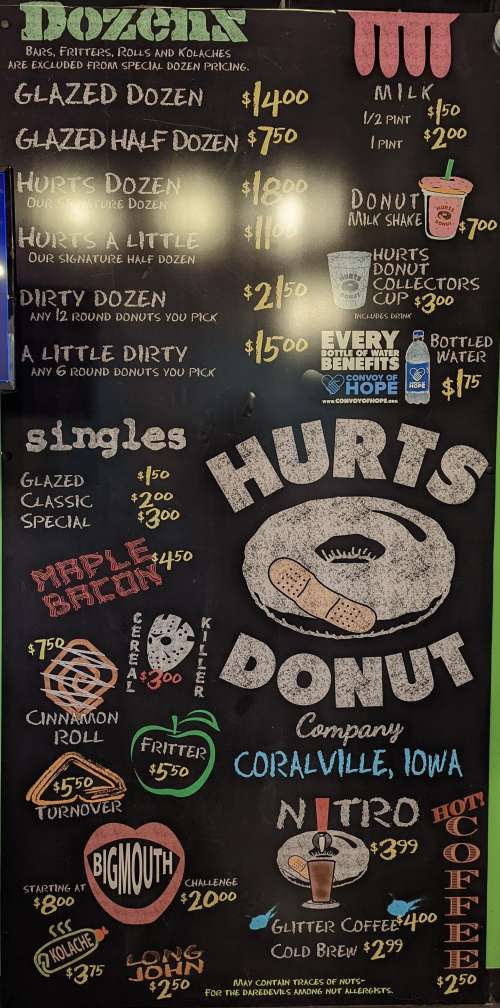 Dozens
Bars, Fritters, Rolls and Kolaches
are excluded from special dozen pricing.
Glazed Dozen $14.00
Glazed Half Dozen $7.50
Hurts Dozen $18.00
Our Signature Dozen
Hurts A Little
Our signature half dozen
Dirty Dozen $21.50
Any 12 round donuts you pick
A Little Dirty $15.00
Any 6 round donuts you pick
Milk
1/2 Pint $1.50
1 Pint $2.00
Donut
Milk Shake $7.00
HURTS
DONUT
Hurts
Donut
Collectors
Cup $3.00
Includes drink
HURTS
DONUT
EVERY
BOTTLE OF WATER
BENEFITS
CONVOY OF
HOPE
www.CONVOYOFHOPE.org
HOPE
Bottled
Water
$1.75
singles
Glazed $1.50
Classic $2.00
Special $3.00
MAPLE
BACON
$4.50
CEREAL
KILLER
$3.00
$7.50
Cinnamon
Roll
Fritter
$5.50
$5.50
Turnover
HURTS
DONUT
Company
CORALVILLE, IOWA
BIGMOUTH
Starting at
$8.00
Challenge
$20.00
KOLACHE
$3.75
LONG
JOHN
$2.50
NITRO
$3.99
Glitter Coffee $4.00
Cold Brew $2.99
HOT!
COFFEE
$2.50
May contain traces of nuts-
For the daredevils among nut allergists.